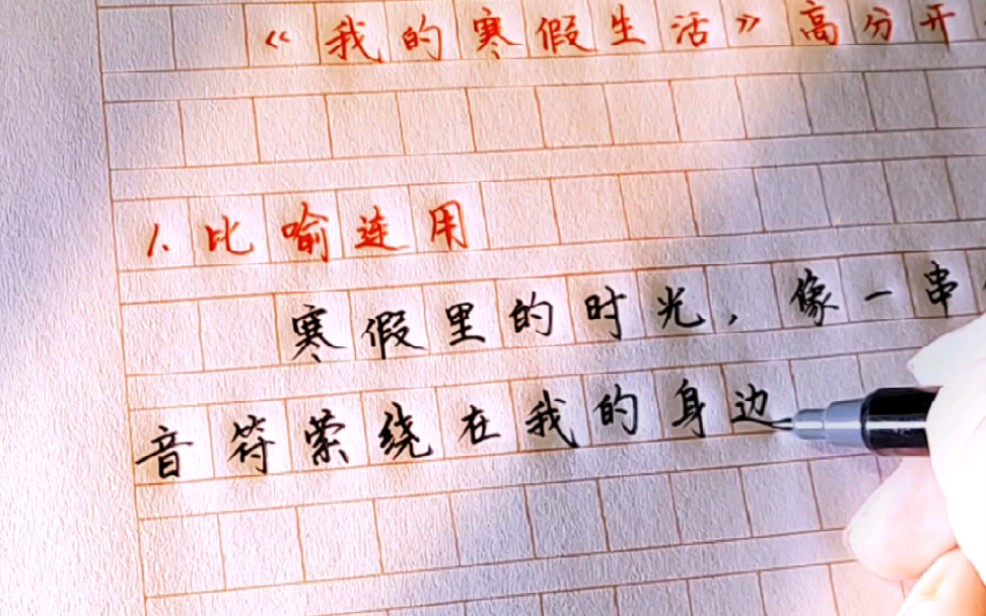 《我的寒假生活》高分开
1.比喻连用
寒假里的时光，像一串
音符萦绕在我的身边